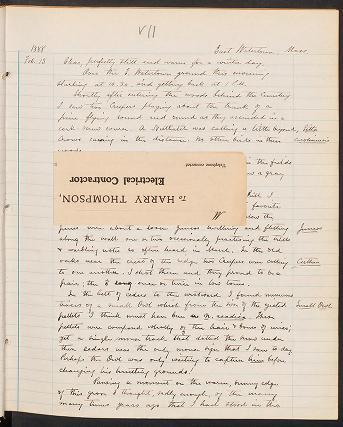 VII
1888 East Watertown, Mass
Feb. 13 Clear, perfectly still and warm for a winter day.
Over the E. Watertown ground this morning
starting at 10.30 and getting back at 1 P.M.
Shortly after entering the woods behind the Cemetery
I saw two Creepers playing about the trunk of a
pine flying round and round as they ascended in a
cork screw course. A Nuthatch was calling a little beyond, Sitta
Crows cawing in the distance. No other birds in these carolinensis
woods.
in the fields
a gray
hill I
favorite
Telephone connected
Electrical Contractor
To HARRY THOMPSON,
M
were about a dozen Juncos twittering and flitting Juncos
along the wall one or two occasionally practising the trills
as is often heard in March. In the old
oaks near the crest of the ridge two Creepers were calling Certhia
to one another. I shot them and they proved to be a
pair; the ♂ sang once or twice in low tones.
In the belt of cedars to the westward I found numerous
traces of a small Owl which from the size of the ejected Small Owl
pellets I think must have been an reading. These
pellets were composed wholly of the hair & bones of mice;
yet a single mouse track that dotted the snow under
these cedars was the only mouse sign that I saw to-day.
Perhaps the Owl was only waiting to capture him before
changing his hunting grounds!
Pausing a moment on the warm, sunny edge
of this grove I thought, sadly enough, of the many
many times years ago that I had stood in this